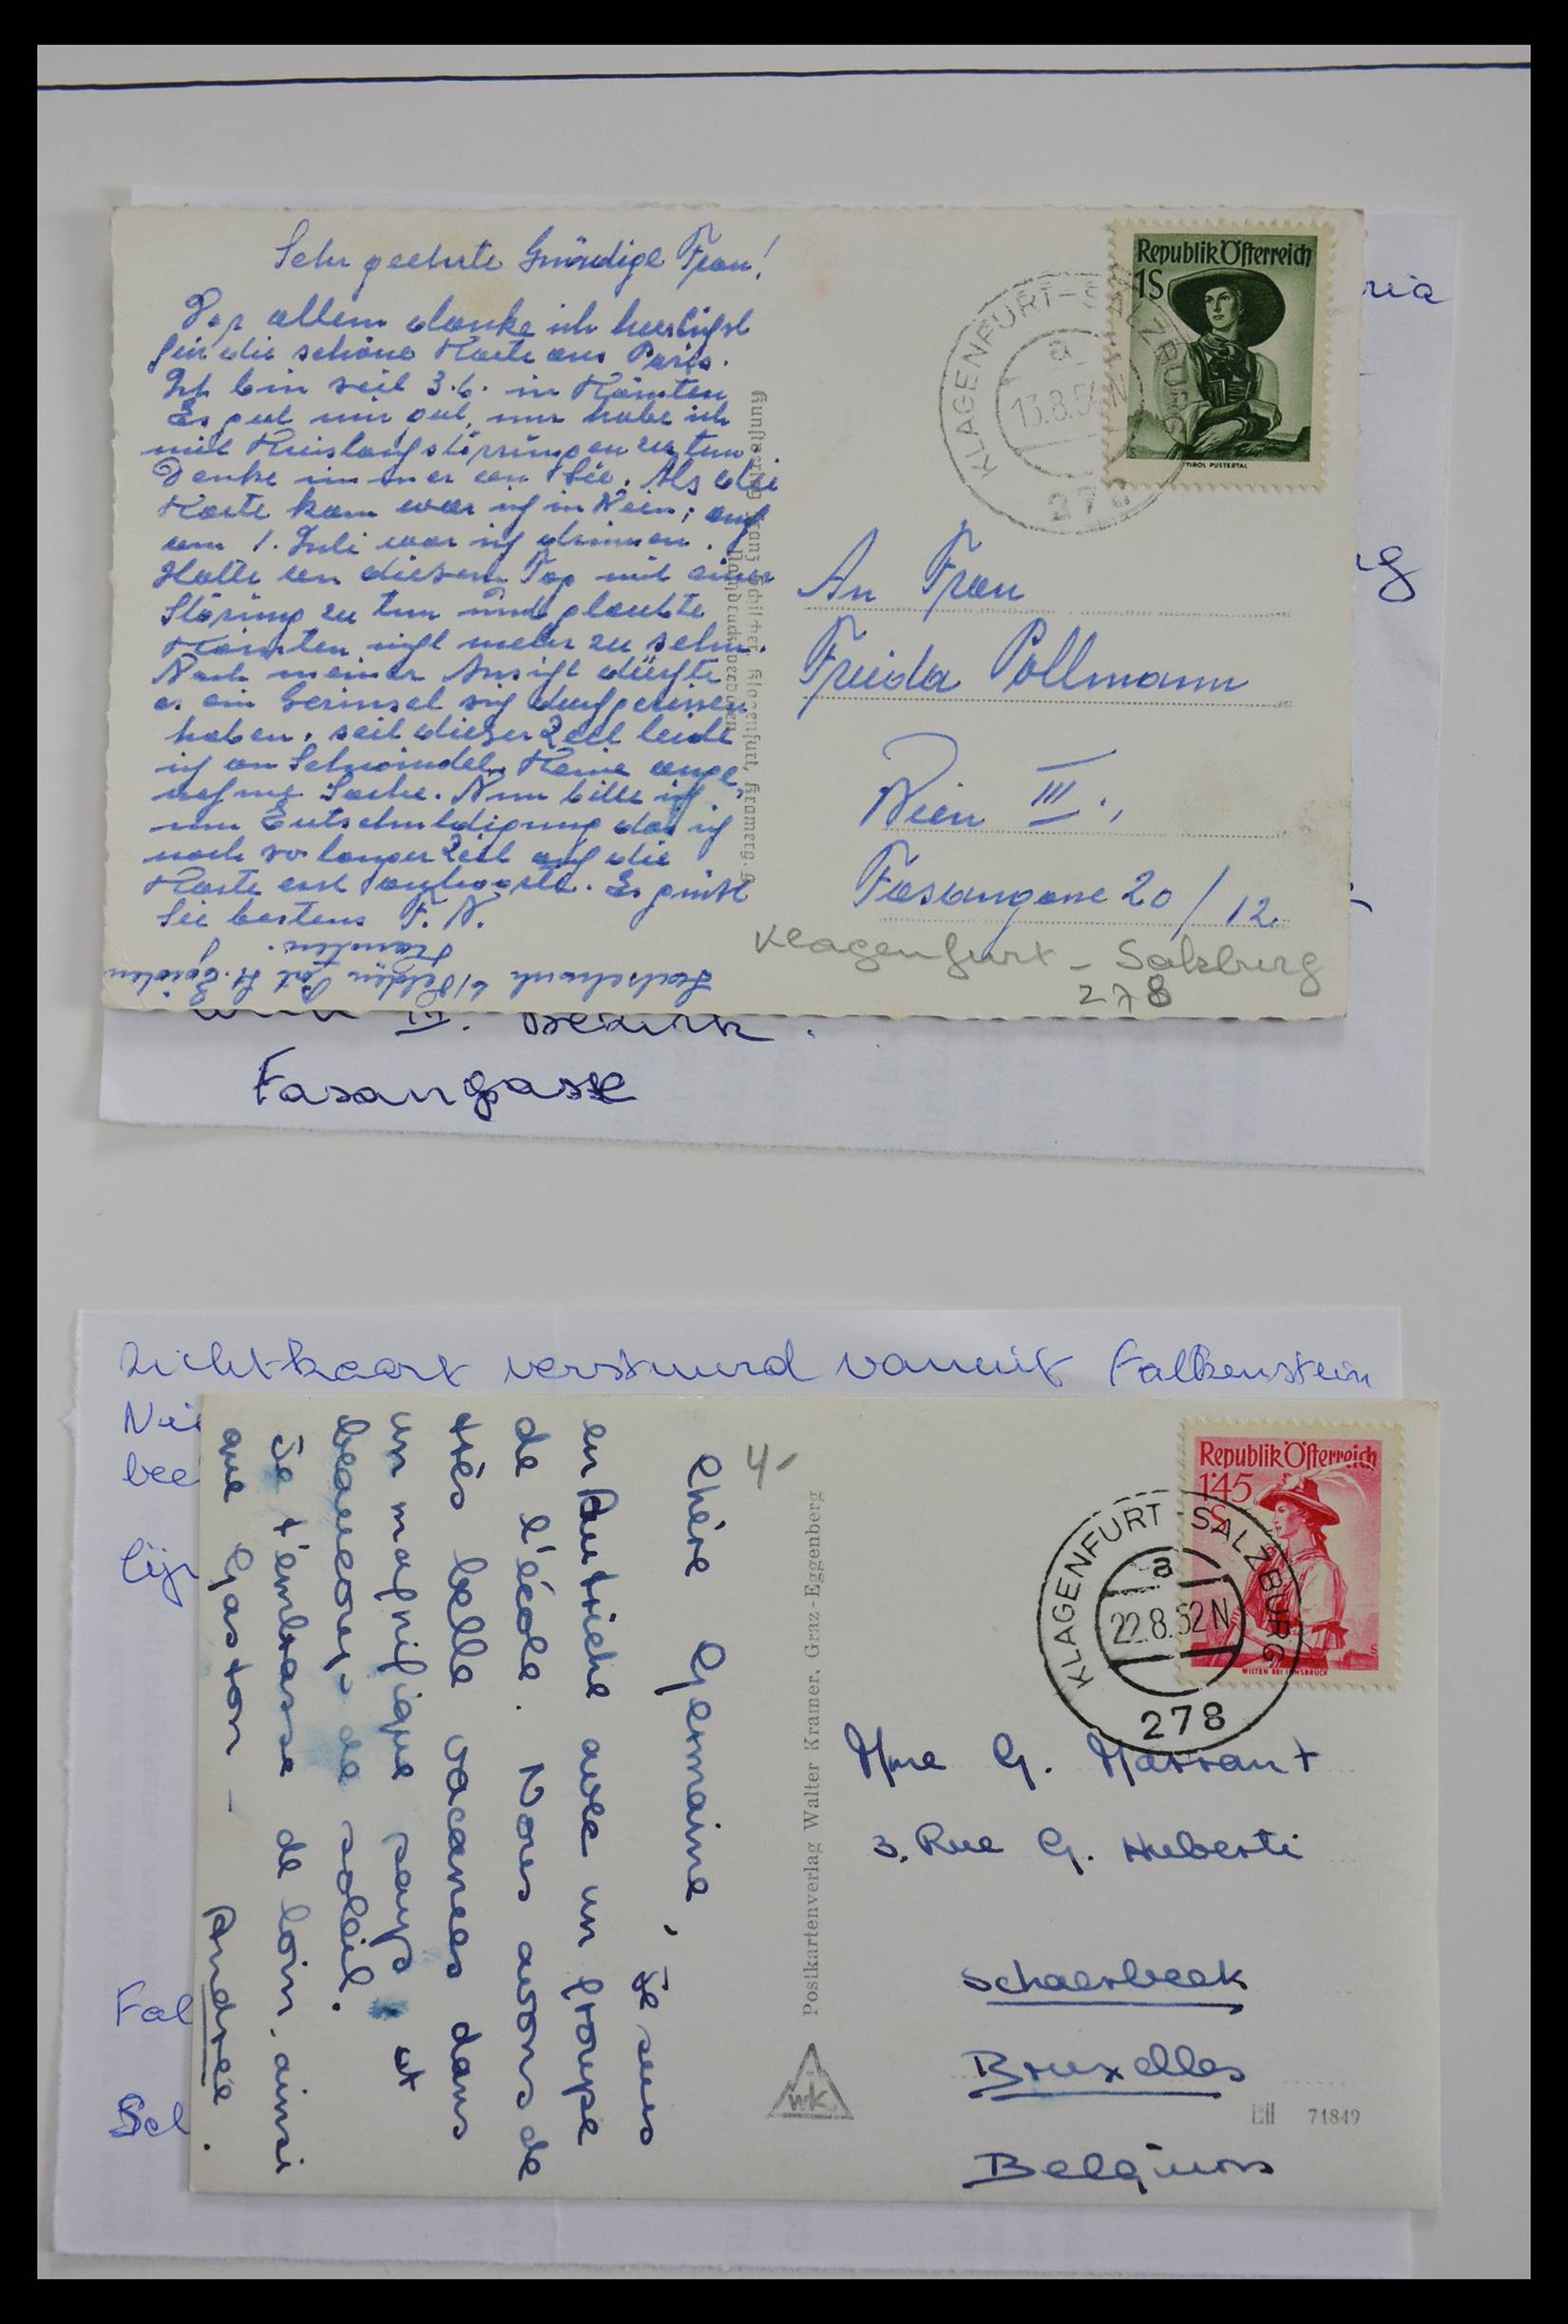 Sehr geehrte Gnädige Frau!
Vor allem danke ich herzlichst
für die schöne Karte aus Paris.
Ich bin seit 3.6. in Kärnten
Es geht mir gut, nur habe ich
mit Kreislaufstörrungen zu tun
Denke immer an Sie. Als die
Karte kam war ich in Wien; auch
am 1. Juli war ich drinnen.
Hatte an diesem Tag mit einer
Störung zu tun und glaubte
Kärnten nicht mehr zu sehn.
Nach meiner Ansicht dürfte
es ein Gerinsel sich
haben. seit dieser Zeit leide
ich an Schwindel. Keine ange
nehme Sache. Nun bitte ich
um Entschuldigung das ich
nach so langer Zeit auf die
Karte erst antworte. Es grüßt
Sie bestens F. N.
Kärnten.
Post St. Egiden
Kunstverlag Franz Schilcher, Klagenfurt,
Nachdruck verboten
Republik Österreich
1S
TIROL PUSTERTAL
KLAGENFURT-SALZBURG
a
13.8.5
278
ria
g
An Frau
Frieda Pollmann
Wien III.,
Fasangasse 20/12
Klagenfurt - Salzburg
278
III. Bezirk.
Fasangasse
Zichtkaart verstuurd vanuit Falkenstein
Nie
bee
lijn
Fal
Sel
4-
Chère Germaine,
Je suis
en Autriche avec un groupe
de l'école. Nous avons de
très belle vacances dans
un magnifique pays et
beaucoup de soleil.
Je t'embrasse de loin, ainsi
que Gaston - Andrée.
Postkartenverlag Walter Kramer, Graz-Eggenberg
WK
Republik Österreich
1.45
S
WILTEN BEI INNSBRUCK
KLAGENFURT-SALZBURG
a
22.8.52 N
278
Mme G. Marrant
3. Rue G. Huberti
Schaerbeek
Bruxelles
Belgium
71849